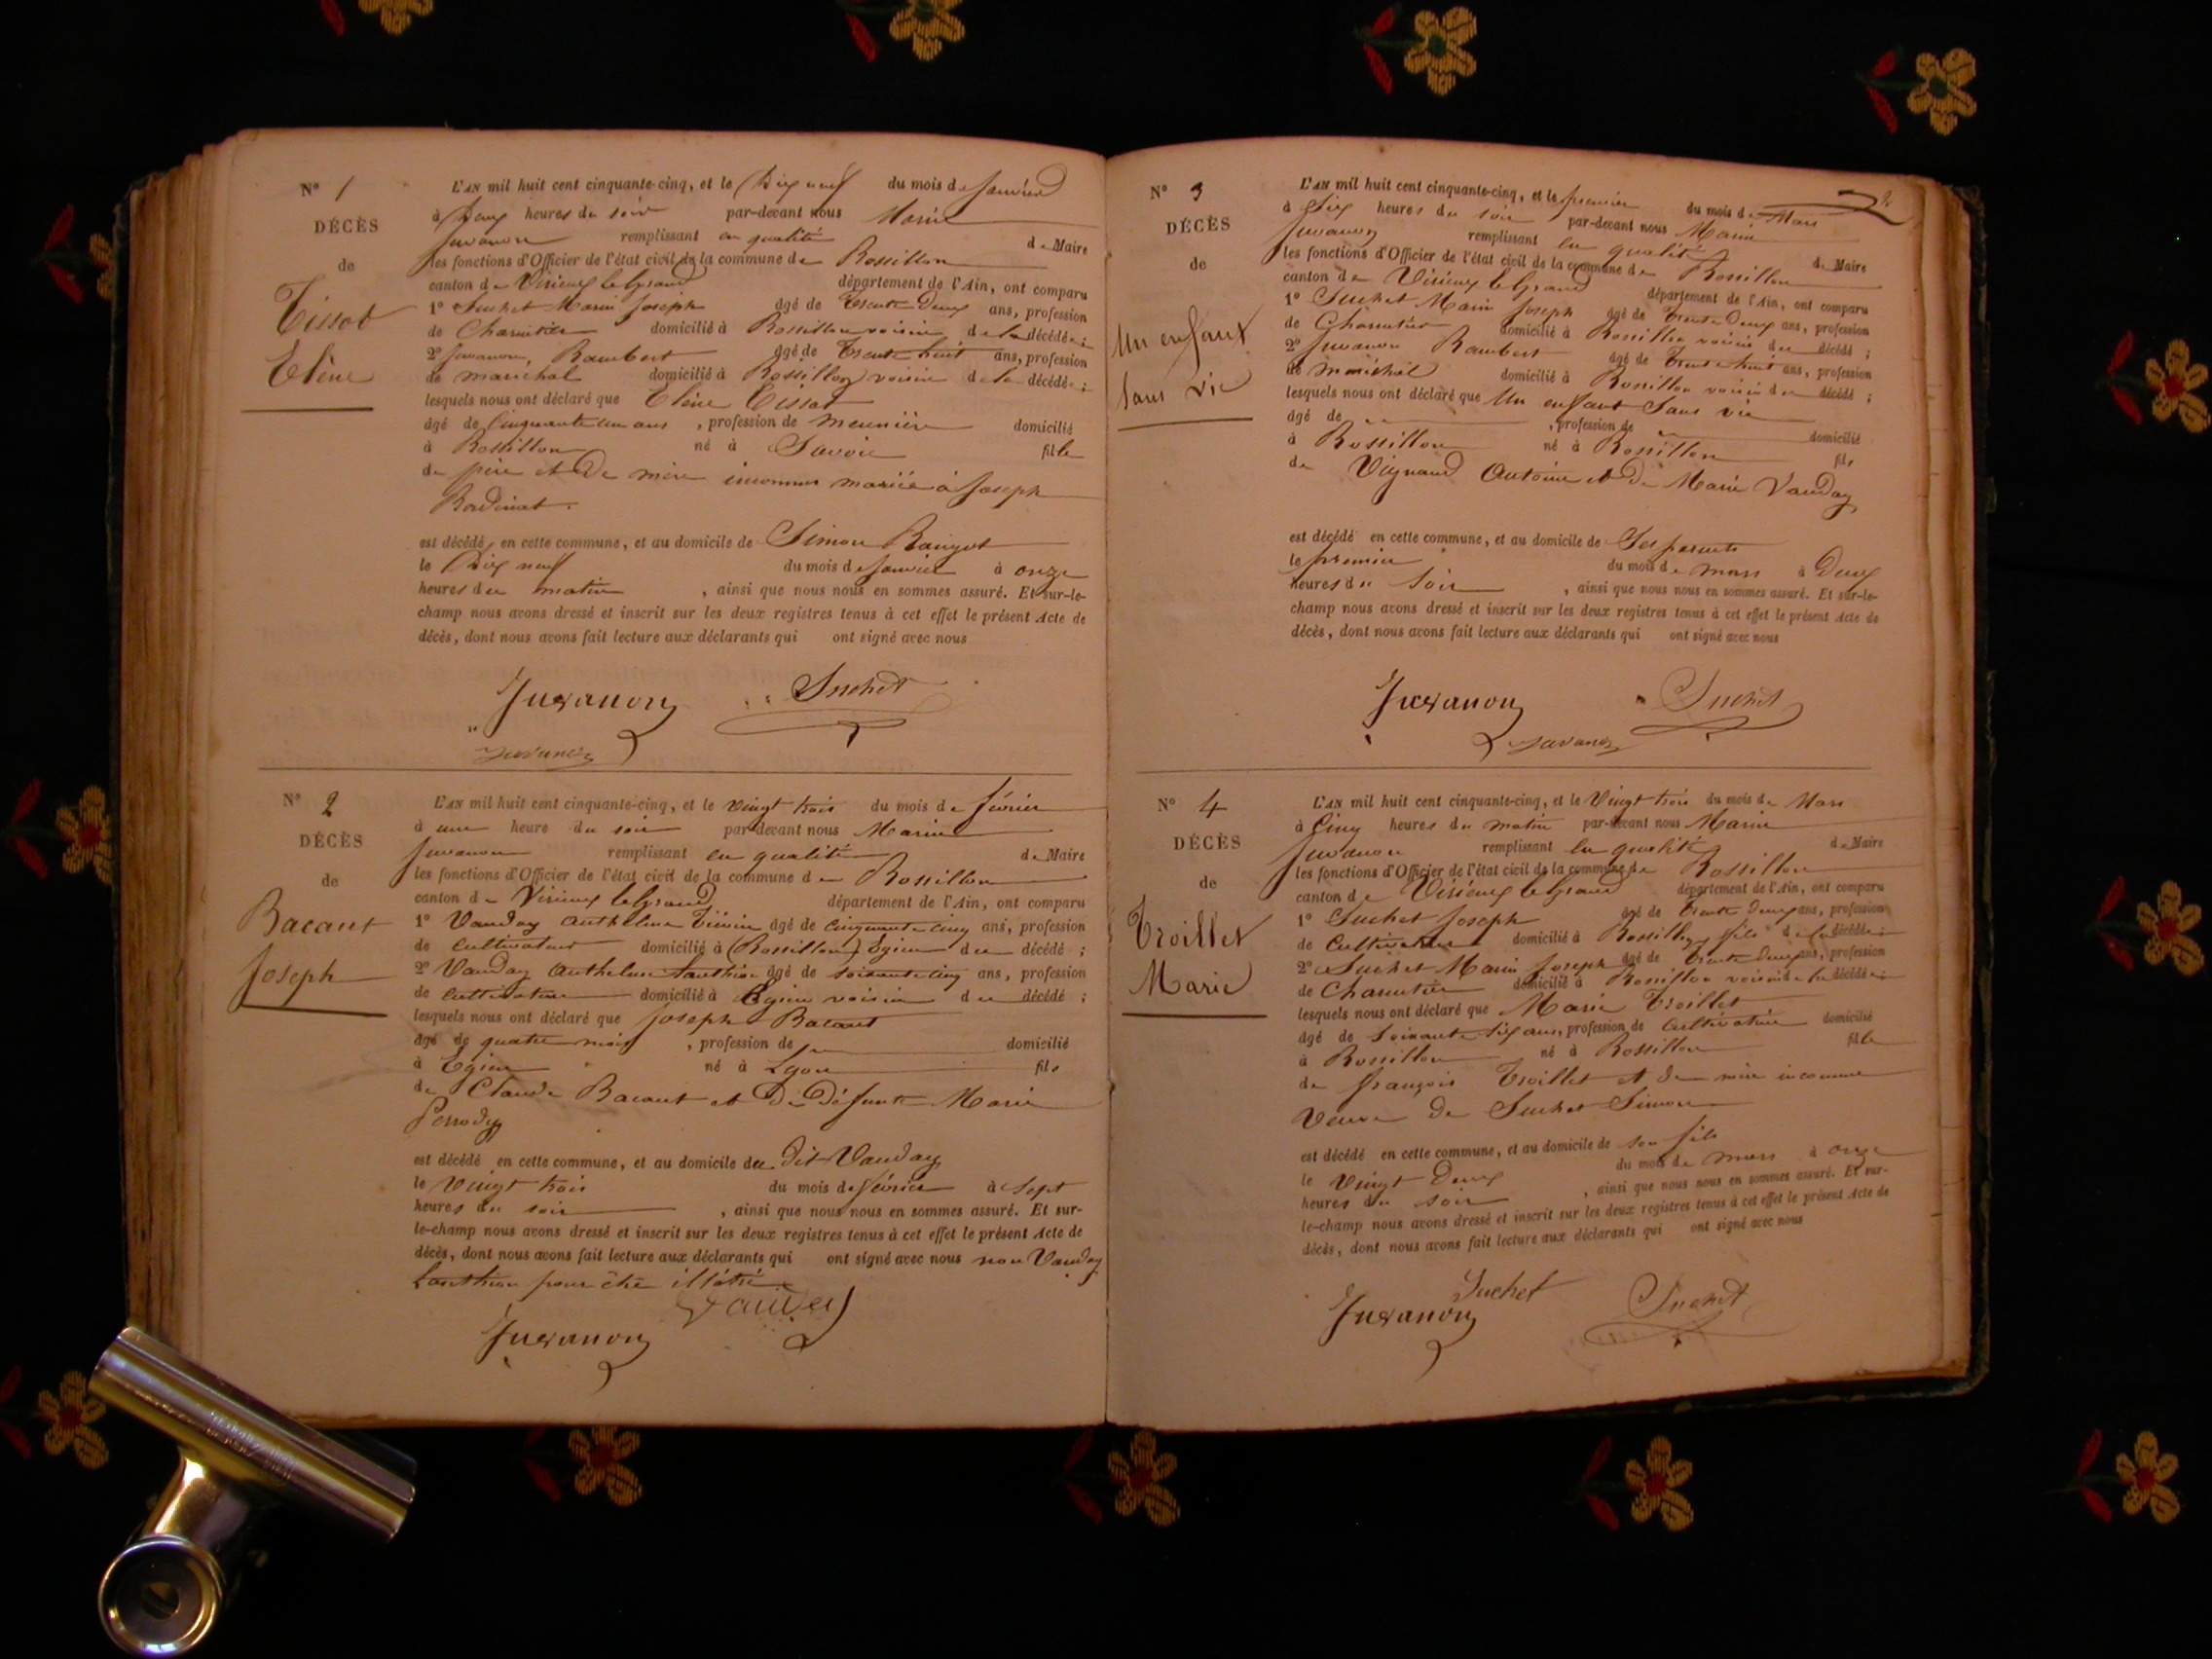 N° 1
DÉCÈS
de
Tissot
Elène
L'AN mil huit cent cinquante-cinq, et le Dix neuf du mois de Janvier
à Deux heures du soir par-devant nous Marin
Juvanon remplissant en qualité de Maire
les fonctions d'Officier de l'état civil de la commune de Rossillon
canton de Virieux le Grand département de l'Ain, ont comparu
1° Suchet Marin Joseph âgé de Trente Deux ans, profession
de Charcutier domicilié à Rossillon voisin de la décédée ;
2° Juvanon, Rambert âgé de Trente huit ans, profession
de maréchal domicilié à Rossillon voisin de la décédée ;
lesquels nous ont déclaré que Elène Tissot
âgé de Cinquante un ans , profession de meunière domicilié
à Rossillon né à Savoie fille
de père et de mère inconnus mariée à Joseph
est décédé, en cette commune, et au domicile de Simon
le Dix neuf du mois de Janvier à onze
heures du matin , ainsi que nous nous en sommes assuré. Et sur-le-
champ nous avons dressé et inscrit sur les deux registres tenus à cet effet le présent Acte de
décès, dont nous avons fait lecture aux déclarants qui ont signé avec nous
Juvanon Suchet
Juvanon
N° 2
DÉCÈS
de
Bacant
Joseph
L'AN mil huit cent cinquante-cinq, et le vingt trois du mois de février
à une heure du soir par-devant nous Marin
Juvanon remplissant en qualité de Maire
les fonctions d'Officier de l'état civil de la commune de Rossillon
canton de Virieux le Grand département de l'Ain, ont comparu
1° Vauday Anthelme âgé de Cinquante Cinq ans, profession
de Cultivateur domicilié à (Rossillon) Egieu du décédé ;
2° Vauday Anthelme Lanthion âgé de soixante cinq ans, profession
de Cultivateur domicilié à Egieu voisin du décédé ;
lesquels nous ont déclaré que Joseph Bacant
âgé de quatre mois , profession de domicilié
à Egieu né à Lyon fils
de Claude Bacant et de Défunte Marie
Perrody
est décédé en cette commune, et au domicile du dit Vauday
le vingt trois du mois de février à Sept
heures du soir , ainsi que nous nous en sommes assuré. Et sur-
le-champ nous avons dressé et inscrit sur les deux registres tenus à cet effet le présent Acte de
décès, dont nous avons fait lecture aux déclarants qui ont signé avec nous non Vauday
Lanthion pour être illétré
Vauday
Juvanon
N° 3
DÉCÈS
de
Un enfant
Sans vie
2
L'AN mil huit cent cinquante-cinq, et le premier du mois de Mars
à Six heures du soir par-devant nous Marin
Juvanon remplissant en qualité de Maire
les fonctions d'Officier de l'état civil de la commune de Rossillon
canton de Virieux le Grand département de l'Ain, ont comparu
1° Suchet Marin Joseph âgé de Trente Deux ans, profession
de Charcutier domicilié à Rossillon voisin du décédé ;
2° Juvanon Rambert âgé de Trente huit ans, profession
de Maréchal domicilié à Rossillon voisin du décédé ;
lesquels nous ont déclaré que Un enfant Sans vie
âgé de , profession de domicilié
à Rossillon né à Rossillon fils
de Vignaud Antoine et de Marie Vauday
est décédé en cette commune, et au domicile de Ses parents
le premier du mois de mars à Deux
heures du Soir , ainsi que nous nous en sommes assuré. Et sur-le-
champ nous avons dressé et inscrit sur les deux registres tenus à cet effet le présent Acte de
décès, dont nous avons fait lecture aux déclarants qui ont signé avec nous
Juvanon Suchet
Juvanon
N° 4
DÉCÈS
de
Troillet
Marie
L'AN mil huit cent cinquante-cinq, et le Vingt trois du mois de Mars
à Cinq heures du matin par-devant nous Marin
Juvanon remplissant en qualité de Maire
les fonctions d'Officier de l'état civil de la commune de Rossillon
canton de Virieux le Grand département de l'Ain, ont comparu
1° Suchet Joseph âgé de trente deux ans, profession
de Cultivateur domicilié à Rossillon fils de la décédée ;
2° Suchet Marin Joseph âgé de Trente deux ans, profession
de Charcutier domicilié à Rossillon voisin de la décédée ;
lesquels nous ont déclaré que Marie Troillet
âgé de Soixante six ans, profession de Cultivatrice domicilié
à Rossillon né à Rossillon fille
de françois Troillet et de mère inconnue
Veuve de Suchet Simon
est décédé en cette commune, et au domicile de son fils
le Vingt Deux du mois de mars à onze
heures du soir , ainsi que nous nous en sommes assuré. Et sur-
le-champ nous avons dressé et inscrit sur les deux registres tenus à cet effet le présent Acte de
décès, dont nous avons fait lecture aux déclarants qui ont signé avec nous
Suchet
Juvanon Suchet